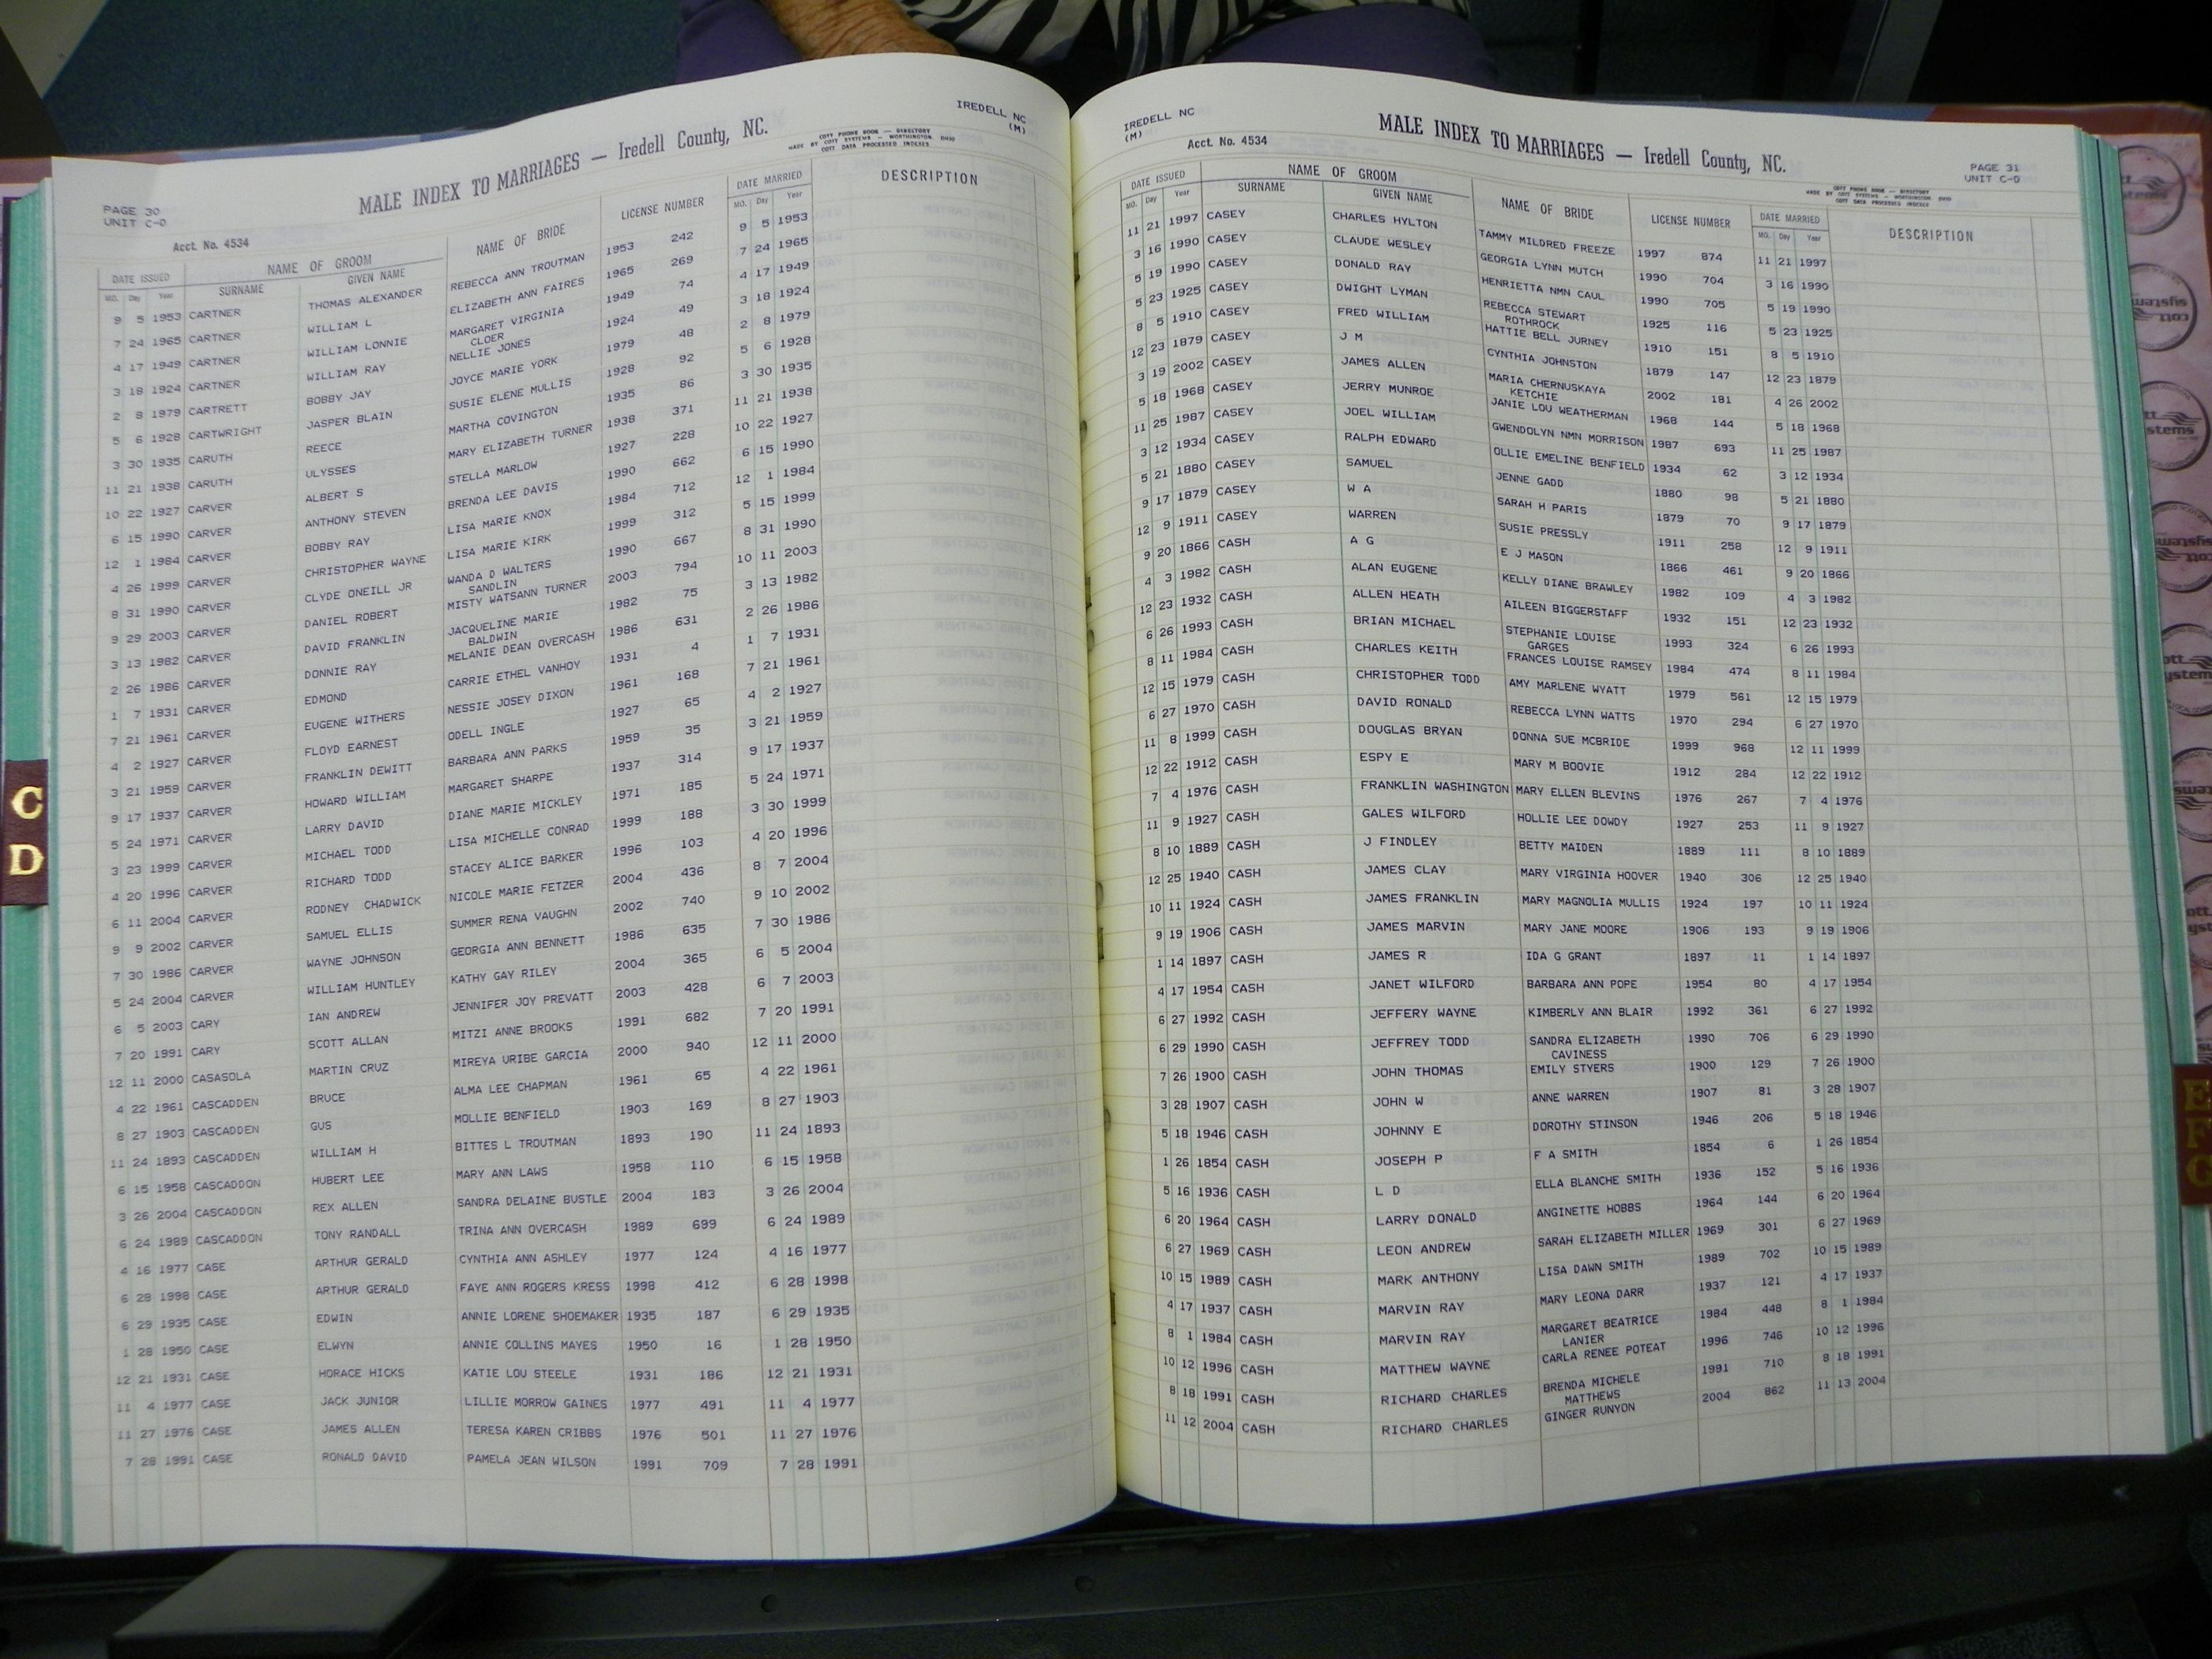 PAGE 30
UNIT C-D
MALE INDEX TO MARRIAGES — Iredell County, NC.
COTT PHONE BOOK — DIRECTORY
MADE BY COTT SYSTEMS — WORTHINGTON OHIO
COTT DATA PROCESSED INDEXES
IREDELL NC
(M)
Acct. No. 4534
DATE ISSUED NAME OF GROOM NAME OF BRIDE LICENSE NUMBER DATE MARRIED DESCRIPTION
MO. Day Year SURNAME GIVEN NAME MO. Day Year
9 5 1953 CARTNER THOMAS ALEXANDER REBECCA ANN TROUTMAN 1953 242 9 5 1953
7 24 1965 CARTNER WILLIAM L ELIZABETH ANN FAIRES 1965 269 7 24 1965
4 17 1949 CARTNER WILLIAM LONNIE MARGARET VIRGINIA 1949 74 4 17 1949
CLOER
3 18 1924 CARTNER WILLIAM RAY NELLIE JONES 1924 49 3 18 1924
2 8 1979 CARTRETT BOBBY JAY JOYCE MARIE YORK 1979 48 2 8 1979
5 6 1928 CARTWRIGHT JASPER BLAIN SUSIE ELENE MULLIS 1928 92 5 6 1928
3 30 1935 CARUTH REECE MARTHA COVINGTON 1935 86 3 30 1935
11 21 1938 CARUTH ULYSSES MARY ELIZABETH TURNER 1938 371 11 21 1938
10 22 1927 CARVER ALBERT S STELLA MARLOW 1927 228 10 22 1927
6 15 1990 CARVER ANTHONY STEVEN BRENDA LEE DAVIS 1990 662 6 15 1990
12 1 1984 CARVER BOBBY RAY LISA MARIE KNOX 1984 712 12 1 1984
4 26 1999 CARVER CHRISTOPHER WAYNE LISA MARIE KIRK 1999 312 5 15 1999
8 31 1990 CARVER CLYDE ONEILL JR WANDA D WALTERS 1990 667 8 31 1990
SANDLIN
9 29 2003 CARVER DANIEL ROBERT MISTY WATSANN TURNER 2003 794 10 11 2003
3 13 1982 CARVER DAVID FRANKLIN JACQUELINE MARIE 1982 75 3 13 1982
BALDWIN
2 26 1986 CARVER DONNIE RAY MELANIE DEAN OVERCASH 1986 631 2 26 1986
1 7 1931 CARVER EDMOND CARRIE ETHEL VANHOY 1931 4 1 7 1931
7 21 1961 CARVER EUGENE WITHERS NESSIE JOSEY DIXON 1961 168 7 21 1961
4 2 1927 CARVER FLOYD EARNEST ODELL INGLE 1927 65 4 2 1927
3 21 1959 CARVER FRANKLIN DEWITT BARBARA ANN PARKS 1959 35 3 21 1959
9 17 1937 CARVER HOWARD WILLIAM MARGARET SHARPE 1937 314 9 17 1937
5 24 1971 CARVER LARRY DAVID DIANE MARIE MICKLEY 1971 185 5 24 1971
3 23 1999 CARVER MICHAEL TODD LISA MICHELLE CONRAD 1999 188 3 30 1999
4 20 1996 CARVER RICHARD TODD STACEY ALICE BARKER 1996 103 4 20 1996
6 11 2004 CARVER RODNEY CHADWICK NICOLE MARIE FETZER 2004 436 8 7 2004
9 9 2002 CARVER SAMUEL ELLIS SUMMER RENA VAUGHN 2002 740 9 10 2002
7 30 1986 CARVER WAYNE JOHNSON GEORGIA ANN BENNETT 1986 635 7 30 1986
5 24 2004 CARVER WILLIAM HUNTLEY KATHY GAY RILEY 2004 365 6 5 2004
6 5 2003 CARY IAN ANDREW JENNIFER JOY PREVATT 2003 428 6 7 2003
7 20 1991 CARY SCOTT ALLAN MITZI ANNE BROOKS 1991 682 7 20 1991
12 11 2000 CASASOLA MARTIN CRUZ MIREYA URIBE GARCIA 2000 940 12 11 2000
4 22 1961 CASCADDEN BRUCE ALMA LEE CHAPMAN 1961 65 4 22 1961
8 27 1903 CASCADDEN GUS MOLLIE BENFIELD 1903 169 8 27 1903
11 24 1893 CASCADDEN WILLIAM H BITTES L TROUTMAN 1893 190 11 24 1893
6 15 1958 CASCADDON HUBERT LEE MARY ANN LAWS 1958 110 6 15 1958
3 26 2004 CASCADDON REX ALLEN SANDRA DELAINE BUSTLE 2004 183 3 26 2004
6 24 1989 CASCADDON TONY RANDALL TRINA ANN OVERCASH 1989 699 6 24 1989
4 16 1977 CASE ARTHUR GERALD CYNTHIA ANN ASHLEY 1977 124 4 16 1977
6 28 1998 CASE ARTHUR GERALD FAYE ANN ROGERS KRESS 1998 412 6 28 1998
6 29 1935 CASE EDWIN ANNIE LORENE SHOEMAKER 1935 187 6 29 1935
1 28 1950 CASE ELWYN ANNIE COLLINS MAYES 1950 16 1 28 1950
12 21 1931 CASE HORACE HICKS KATIE LOU STEELE 1931 186 12 21 1931
11 4 1977 CASE JACK JUNIOR LILLIE MORROW GAINES 1977 491 11 4 1977
11 27 1976 CASE JAMES ALLEN TERESA KAREN CRIBBS 1976 501 11 27 1976
7 28 1991 CASE RONALD DAVID PAMELA JEAN WILSON 1991 709 7 28 1991
C
D
IREDELL NC
(M)
Acct. No. 4534
MALE INDEX TO MARRIAGES — Iredell County, NC.
PAGE 31
UNIT C-D
COTT PHONE BOOK — DIRECTORY
MADE BY COTT SYSTEMS — WORTHINGTON OHIO
COTT DATA PROCESSED INDEXES
DATE ISSUED NAME OF GROOM NAME OF BRIDE LICENSE NUMBER DATE MARRIED DESCRIPTION
MO. Day Year SURNAME GIVEN NAME MO. Day Year
11 21 1997 CASEY CHARLES HYLTON TAMMY MILDRED FREEZE 1997 874 11 21 1997
3 16 1990 CASEY CLAUDE WESLEY GEORGIA LYNN MUTCH 1990 704 3 16 1990
5 19 1990 CASEY DONALD RAY HENRIETTA NMN CAUL 1990 705 5 19 1990
5 23 1925 CASEY DWIGHT LYMAN REBECCA STEWART 1925 116 5 23 1925
ROTHROCK
8 5 1910 CASEY FRED WILLIAM HATTIE BELL JURNEY 1910 151 8 5 1910
12 23 1879 CASEY J M CYNTHIA JOHNSTON 1879 147 12 23 1879
3 19 2002 CASEY JAMES ALLEN MARIA CHERNUSKAYA 2002 181 4 26 2002
KETCHIE
5 18 1968 CASEY JERRY MUNROE JANIE LOU WEATHERMAN 1968 144 5 18 1968
11 25 1987 CASEY JOEL WILLIAM GWENDOLYN NMN MORRISON 1987 693 11 25 1987
3 12 1934 CASEY RALPH EDWARD OLLIE EMELINE BENFIELD 1934 62 3 12 1934
5 21 1880 CASEY SAMUEL JENNE GADD 1880 98 5 21 1880
9 17 1879 CASEY W A SARAH H PARIS 1879 70 9 17 1879
12 9 1911 CASEY WARREN SUSIE PRESSLY 1911 258 12 9 1911
9 20 1866 CASH A G E J MASON 1866 461 9 20 1866
4 3 1982 CASH ALAN EUGENE KELLY DIANE BRAWLEY 1982 109 4 3 1982
12 23 1932 CASH ALLEN HEATH AILEEN BIGGERSTAFF 1932 151 12 23 1932
6 26 1993 CASH BRIAN MICHAEL STEPHANIE LOUISE 1993 324 6 26 1993
GARGES
8 11 1984 CASH CHARLES KEITH FRANCES LOUISE RAMSEY 1984 474 8 11 1984
12 15 1979 CASH CHRISTOPHER TODD AMY MARLENE WYATT 1979 561 12 15 1979
6 27 1970 CASH DAVID RONALD REBECCA LYNN WATTS 1970 294 6 27 1970
11 8 1999 CASH DOUGLAS BRYAN DONNA SUE MCBRIDE 1999 968 12 11 1999
12 22 1912 CASH ESPY E MARY M BOOVIE 1912 284 12 22 1912
7 4 1976 CASH FRANKLIN WASHINGTON MARY ELLEN BLEVINS 1976 267 7 4 1976
11 9 1927 CASH GALES WILFORD HOLLIE LEE DOWDY 1927 253 11 9 1927
8 10 1889 CASH J FINDLEY BETTY MAIDEN 1889 111 8 10 1889
12 25 1940 CASH JAMES CLAY MARY VIRGINIA HOOVER 1940 306 12 25 1940
10 11 1924 CASH JAMES FRANKLIN MARY MAGNOLIA MULLIS 1924 197 10 11 1924
9 19 1906 CASH JAMES MARVIN MARY JANE MOORE 1906 193 9 19 1906
1 14 1897 CASH JAMES R IDA G GRANT 1897 11 1 14 1897
4 17 1954 CASH JANET WILFORD BARBARA ANN POPE 1954 80 4 17 1954
6 27 1992 CASH JEFFERY WAYNE KIMBERLY ANN BLAIR 1992 361 6 27 1992
6 29 1990 CASH JEFFREY TODD SANDRA ELIZABETH 1990 706 6 29 1990
CAVINESS
7 26 1900 CASH JOHN THOMAS EMILY STYERS 1900 129 7 26 1900
3 28 1907 CASH JOHN W ANNE WARREN 1907 81 3 28 1907
5 18 1946 CASH JOHNNY E DOROTHY STINSON 1946 206 5 18 1946
1 26 1854 CASH JOSEPH P F A SMITH 1854 6 1 26 1854
5 16 1936 CASH L D ELLA BLANCHE SMITH 1936 152 5 16 1936
6 20 1964 CASH LARRY DONALD ANGINETTE HOBBS 1964 144 6 20 1964
6 27 1969 CASH LEON ANDREW SARAH ELIZABETH MILLER 1969 301 6 27 1969
10 15 1989 CASH MARK ANTHONY LISA DAWN SMITH 1989 702 10 15 1989
4 17 1937 CASH MARVIN RAY MARY LEONA DARR 1937 121 4 17 1937
8 1 1984 CASH MARVIN RAY MARGARET BEATRICE 1984 448 8 1 1984
LANIER
10 12 1996 CASH MATTHEW WAYNE CARLA RENEE POTEAT 1996 746 10 12 1996
8 18 1991 CASH RICHARD CHARLES BRENDA MICHELE 1991 710 8 18 1991
MATTHEWS
11 12 2004 CASH RICHARD CHARLES GINGER RUNYON 2004 862 11 13 2004
E
F
G